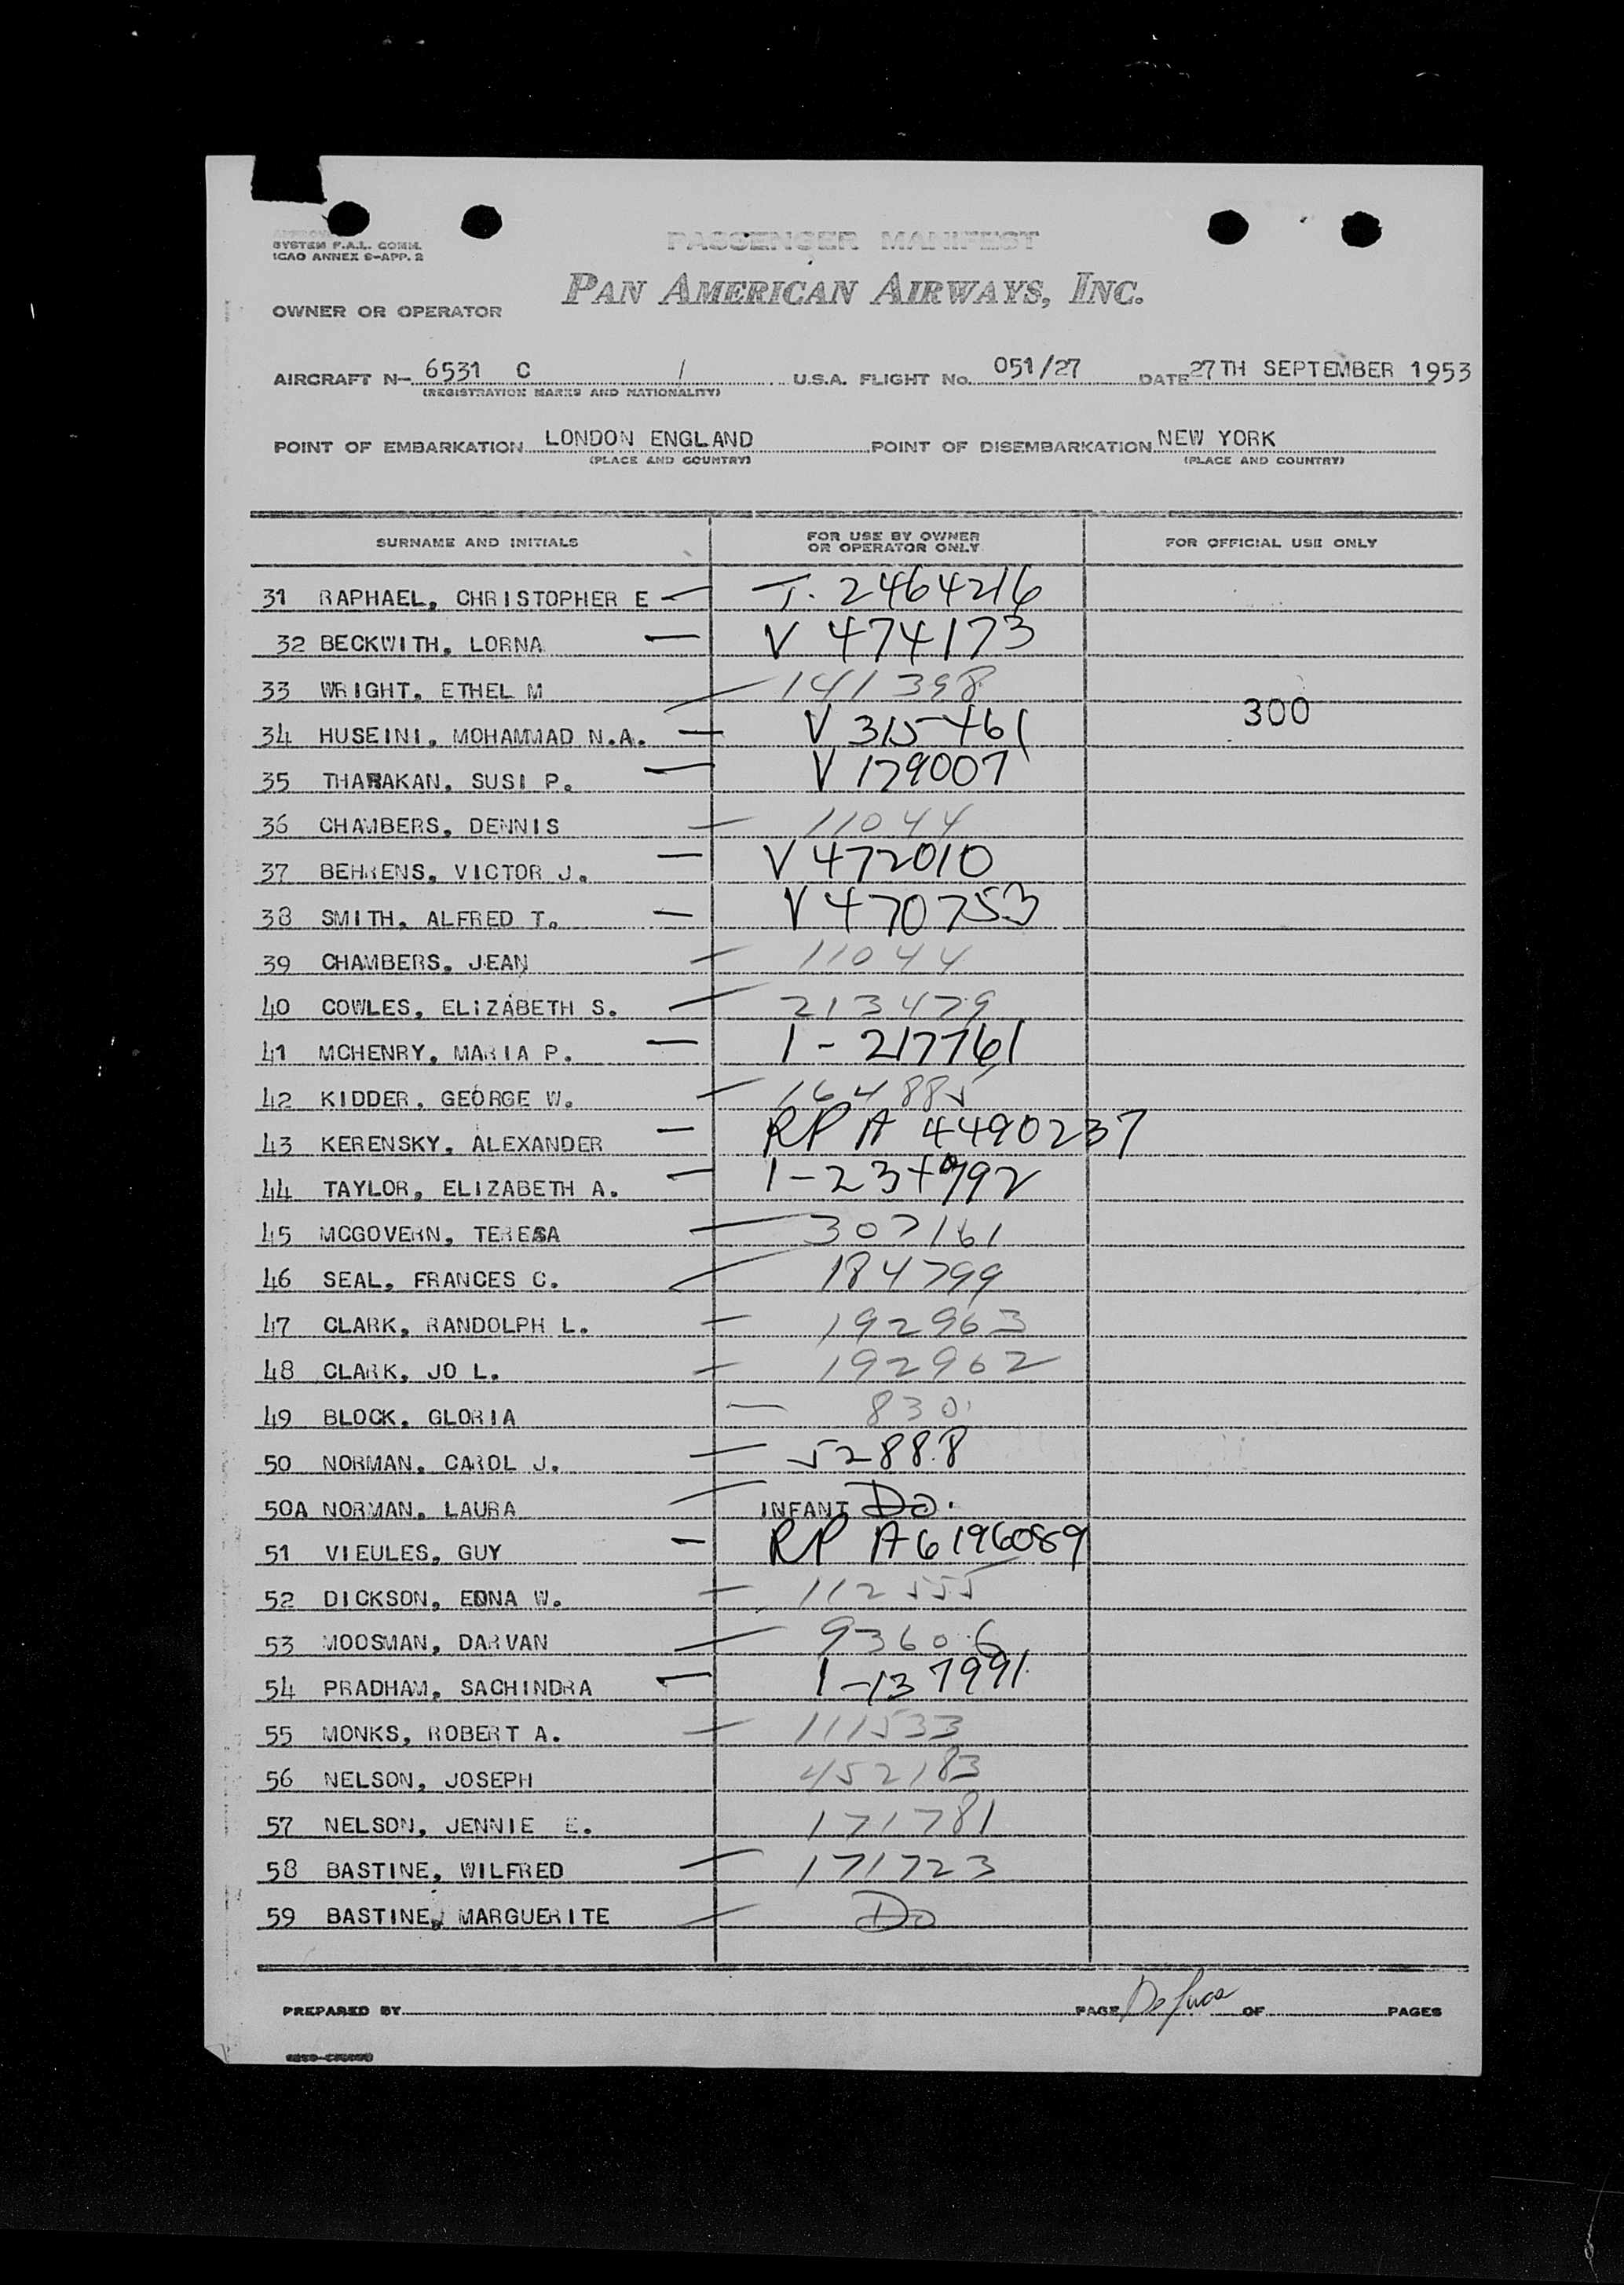 SYSTEM F.A.L. COMM.
ICAO ANNEX 9-APP. 2
PASSENGER MANIFEST
PAN AMERICAN AIRWAYS, INC.
OWNER OR OPERATOR
AIRCRAFT N- 6531 C / U.S.A. FLIGHT No. 051/27 DATE 27TH SEPTEMBER 1953
(REGISTRATION MARKS AND NATIONALITY)
POINT OF EMBARKATION LONDON ENGLAND POINT OF DISEMBARKATION NEW YORK
(PLACE AND COUNTRY) (PLACE AND COUNTRY)
SURNAME AND INITIALS FOR USE BY OWNER OR OPERATOR ONLY FOR OFFICIAL USE ONLY
31 RAPHAEL, CHRISTOPHER E — T. 2464216
32 BECKWITH, LORNA — V 474173
33 WRIGHT, ETHEL M — 141398
34 HUSEINI, MOHAMMAD N.A. — V 315461 300
35 THARAKAN, SUSI P. — V 179007
36 CHAMBERS, DENNIS — 11044
37 BEHRENS, VICTOR J. — V 472010
38 SMITH, ALFRED T. — V 470753
39 CHAMBERS, JEAN — 11044
40 COWLES, ELIZABETH S. — 213479
41 MCHENRY, MARIA P. — 1-217761
42 KIDDER, GEORGE W. — 164885
43 KERENSKY, ALEXANDER — RP A 4490237
44 TAYLOR, ELIZABETH A. —
45 MCGOVERN, TERESA — 307161
46 SEAL, FRANCES C. — 184799
47 CLARK, RANDOLPH L. — 192963
48 CLARK, JO L. — 192962
49 BLOCK, GLORIA — 830
50 NORMAN, CAROL J. — 52888
50A NORMAN, LAURA — INFANT Do.
51 VIEULES, GUY — RP A6196089
52 DICKSON, EDNA W. — 112555
53 MOOSMAN, DARVAN — 93606
54 PRADHAM, SACHINDRA — 1-137991
55 MONKS, ROBERT A. — 111533
56 NELSON, JOSEPH 452183
57 NELSON, JENNIE E. 171781
58 BASTINE, WILFRED — 171723
59 BASTINE, MARGUERITE — Do
PREPARED BY PAGE OF PAGES